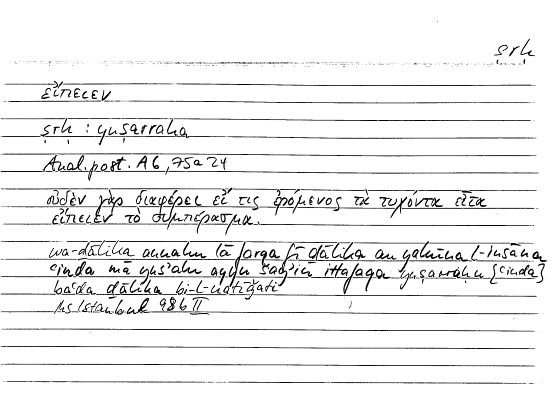 srh
εἴπειεν
ṣrḥ : yuṣarraḥa
Anal. post. A6, 75a24
οὐδὲν γὰρ διαφέρει εἴ τις ἐρόμενος τὰ τυχόντα εἶτα
εἴπειεν τὸ συμπέρασμα.
wa-ḏālika annahu lā farqa fī ḏālika an yakūna l-insānu
ʿinda mā yusʾalu ayyu šayʾin ittafaqa yuṣarraḥu {ʿinda}
baʿda ḏālika bi-l-natīǧati
Ms Istanbul 986 II